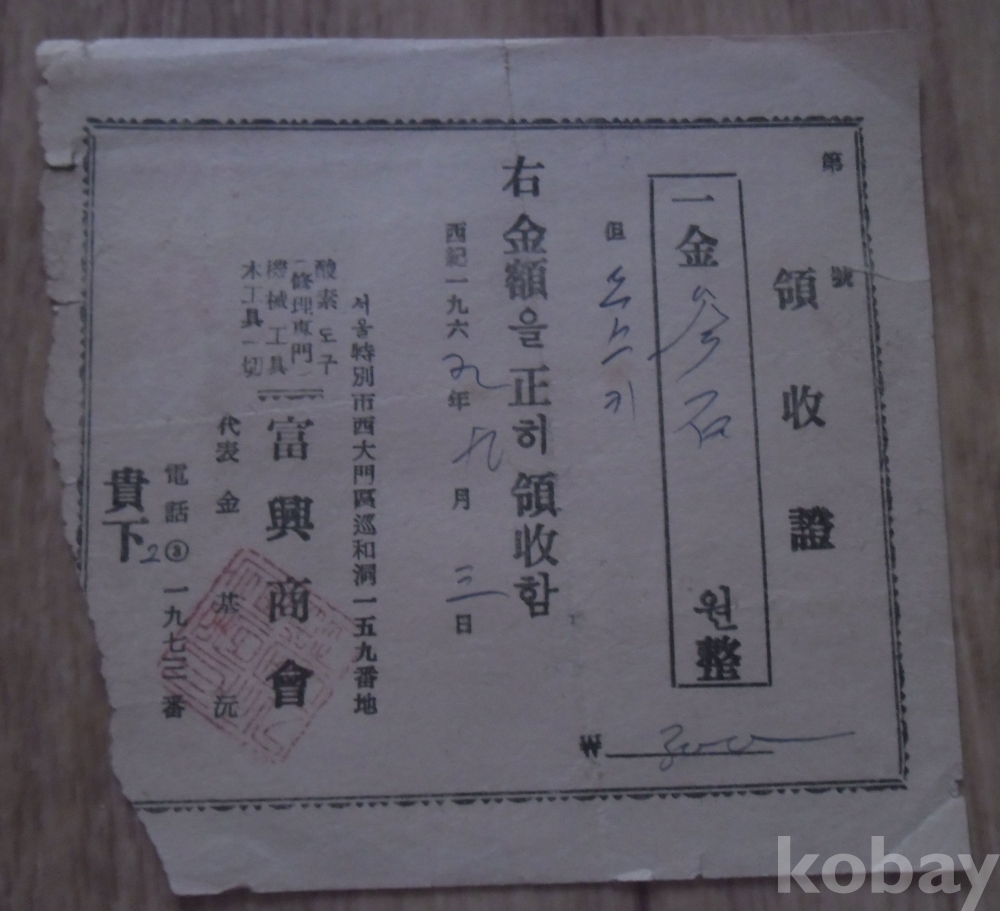 第 號
領收證
一金 參百 원整
₩ 300
但 스스키
右金額을 正히 領收함
西紀一九六九年 九月 三日
서울特別市西大門區巡和洞一五九番地
酸素도구
修理專門
機械工具
木工具一切
富興商會
代表 金基沅
電話 ③ 2 一九七二番
貴下
kobay